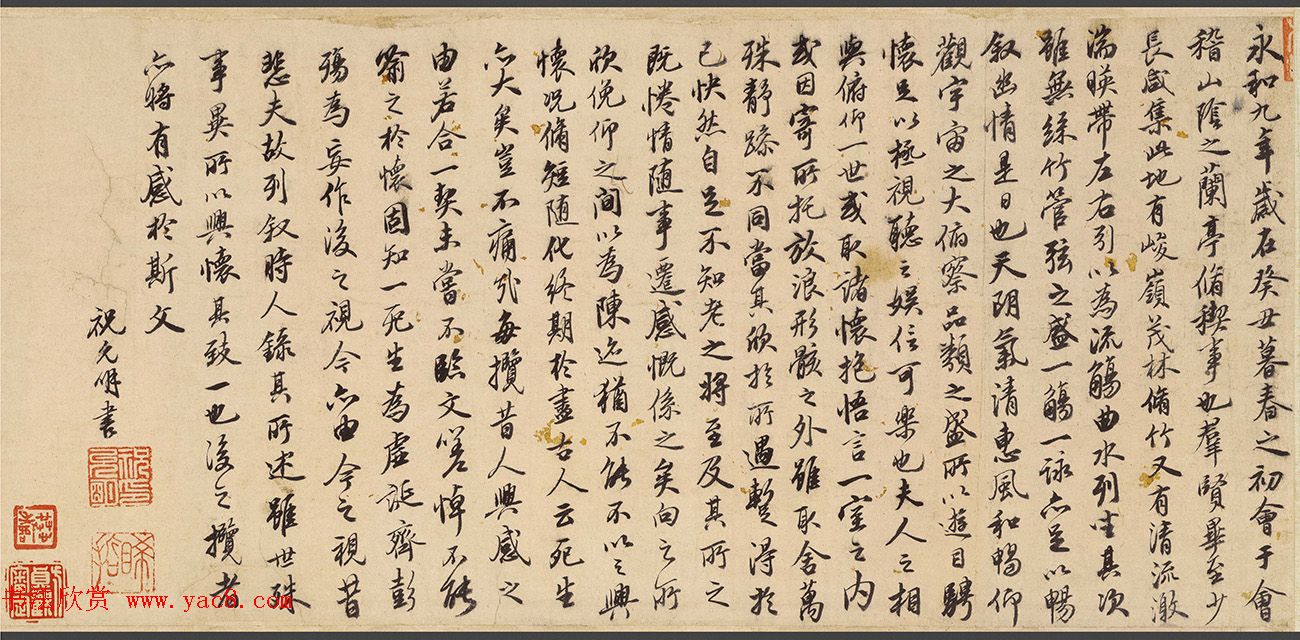 永和九年歲在癸丑暮春之初會于會
稽山陰之蘭亭脩稧事也羣賢畢至少
長咸集此地有峻嶺茂林脩竹又有清流激
湍暎帶左右引以為流觴曲水列坐其次
雖無絲竹管弦之盛一觴一詠亦足以暢
叙幽情是日也天朗氣清惠風和暢仰
觀宇宙之大俯察品類之盛所以遊目騁
懷足以極視聽之娛信可樂也夫人之相
與俯仰一世或取諸懷抱悟言一室之內
或因寄所托放浪形骸之外雖取舍萬
殊靜躁不同當其欣於所遇暫得於
己快然自足不知老之將至及其所之
既惓情随事遷感慨係之矣向之所
欣俛仰之間以為陳迹猶不能不以之興
懷況脩短随化終期於盡古人云死生
亦大矣豈不痛哉每攬昔人興感之
由若合一契未嘗不臨文嗟悼不能
喻之於懷固知一死生為虛誕齊彭
殤為妄作後之視今亦由今之視昔
悲夫故列叙時人錄其所述雖世殊
事異所以興懷其致一也後之攬者
亦將有感於斯文
祝允明書
书法欣赏 www.yac8.com